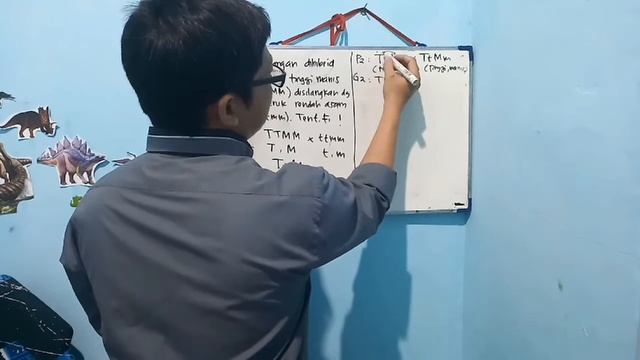 ngan dihibrid
tinggi manis
M) disilangkan dg
uk rendah asam
tmm). Tent. F1 !
TTMM x ttmm
T, M t, m
T
P2 : T TtMm
(tinggi, manis)
G2 : T